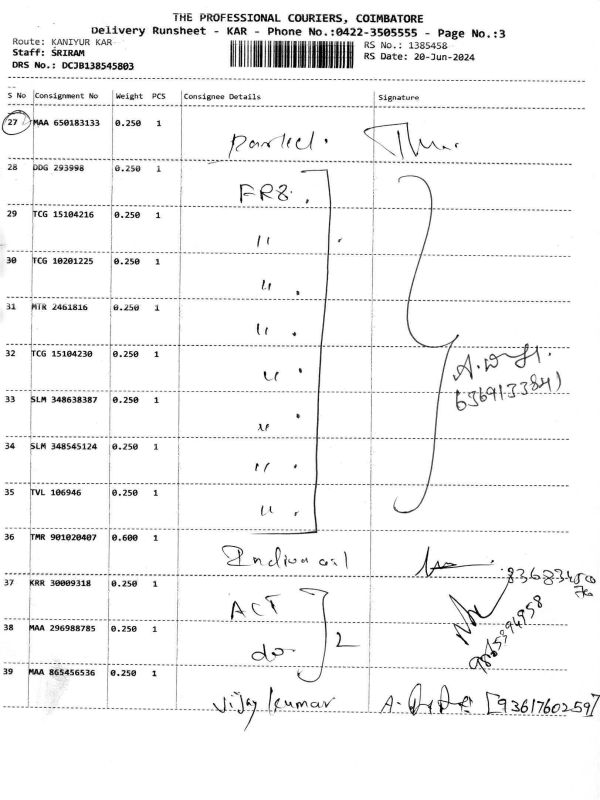 THE PROFESSIONAL COURIERS, COIMBATORE
Delivery Runsheet - KAR - Phone No.:0422-3505555 - Page No.:3
Route: KANIYUR KAR
Staff: SRIRAM
DRS No.: DCJB138545803
RS No.: 1385458
RS Date: 20-Jun-2024
S No Consignment No Weight PCS Consignee Details Signature
27 MAA 650183133 0.250 1
28 DDG 293998 0.250 1 FR8.
29 TCG 15104216 0.250 1 〃
30 TCG 10201225 0.250 1 〃
31 MTR 2461816 0.250 1 〃
32 TCG 15104230 0.250 1 〃
33 SLM 348638387 0.250 1 〃
34 SLM 348545124 0.250 1 〃
35 TVL 106946 0.250 1 〃
36 TMR 901020407 0.600 1 Indian oil
37 KRR 30009318 0.250 1 ACT
38 MAA 296988785 0.250 1 do 2
39 MAA 865456536 0.250 1 Vijay kumar [9361760259]